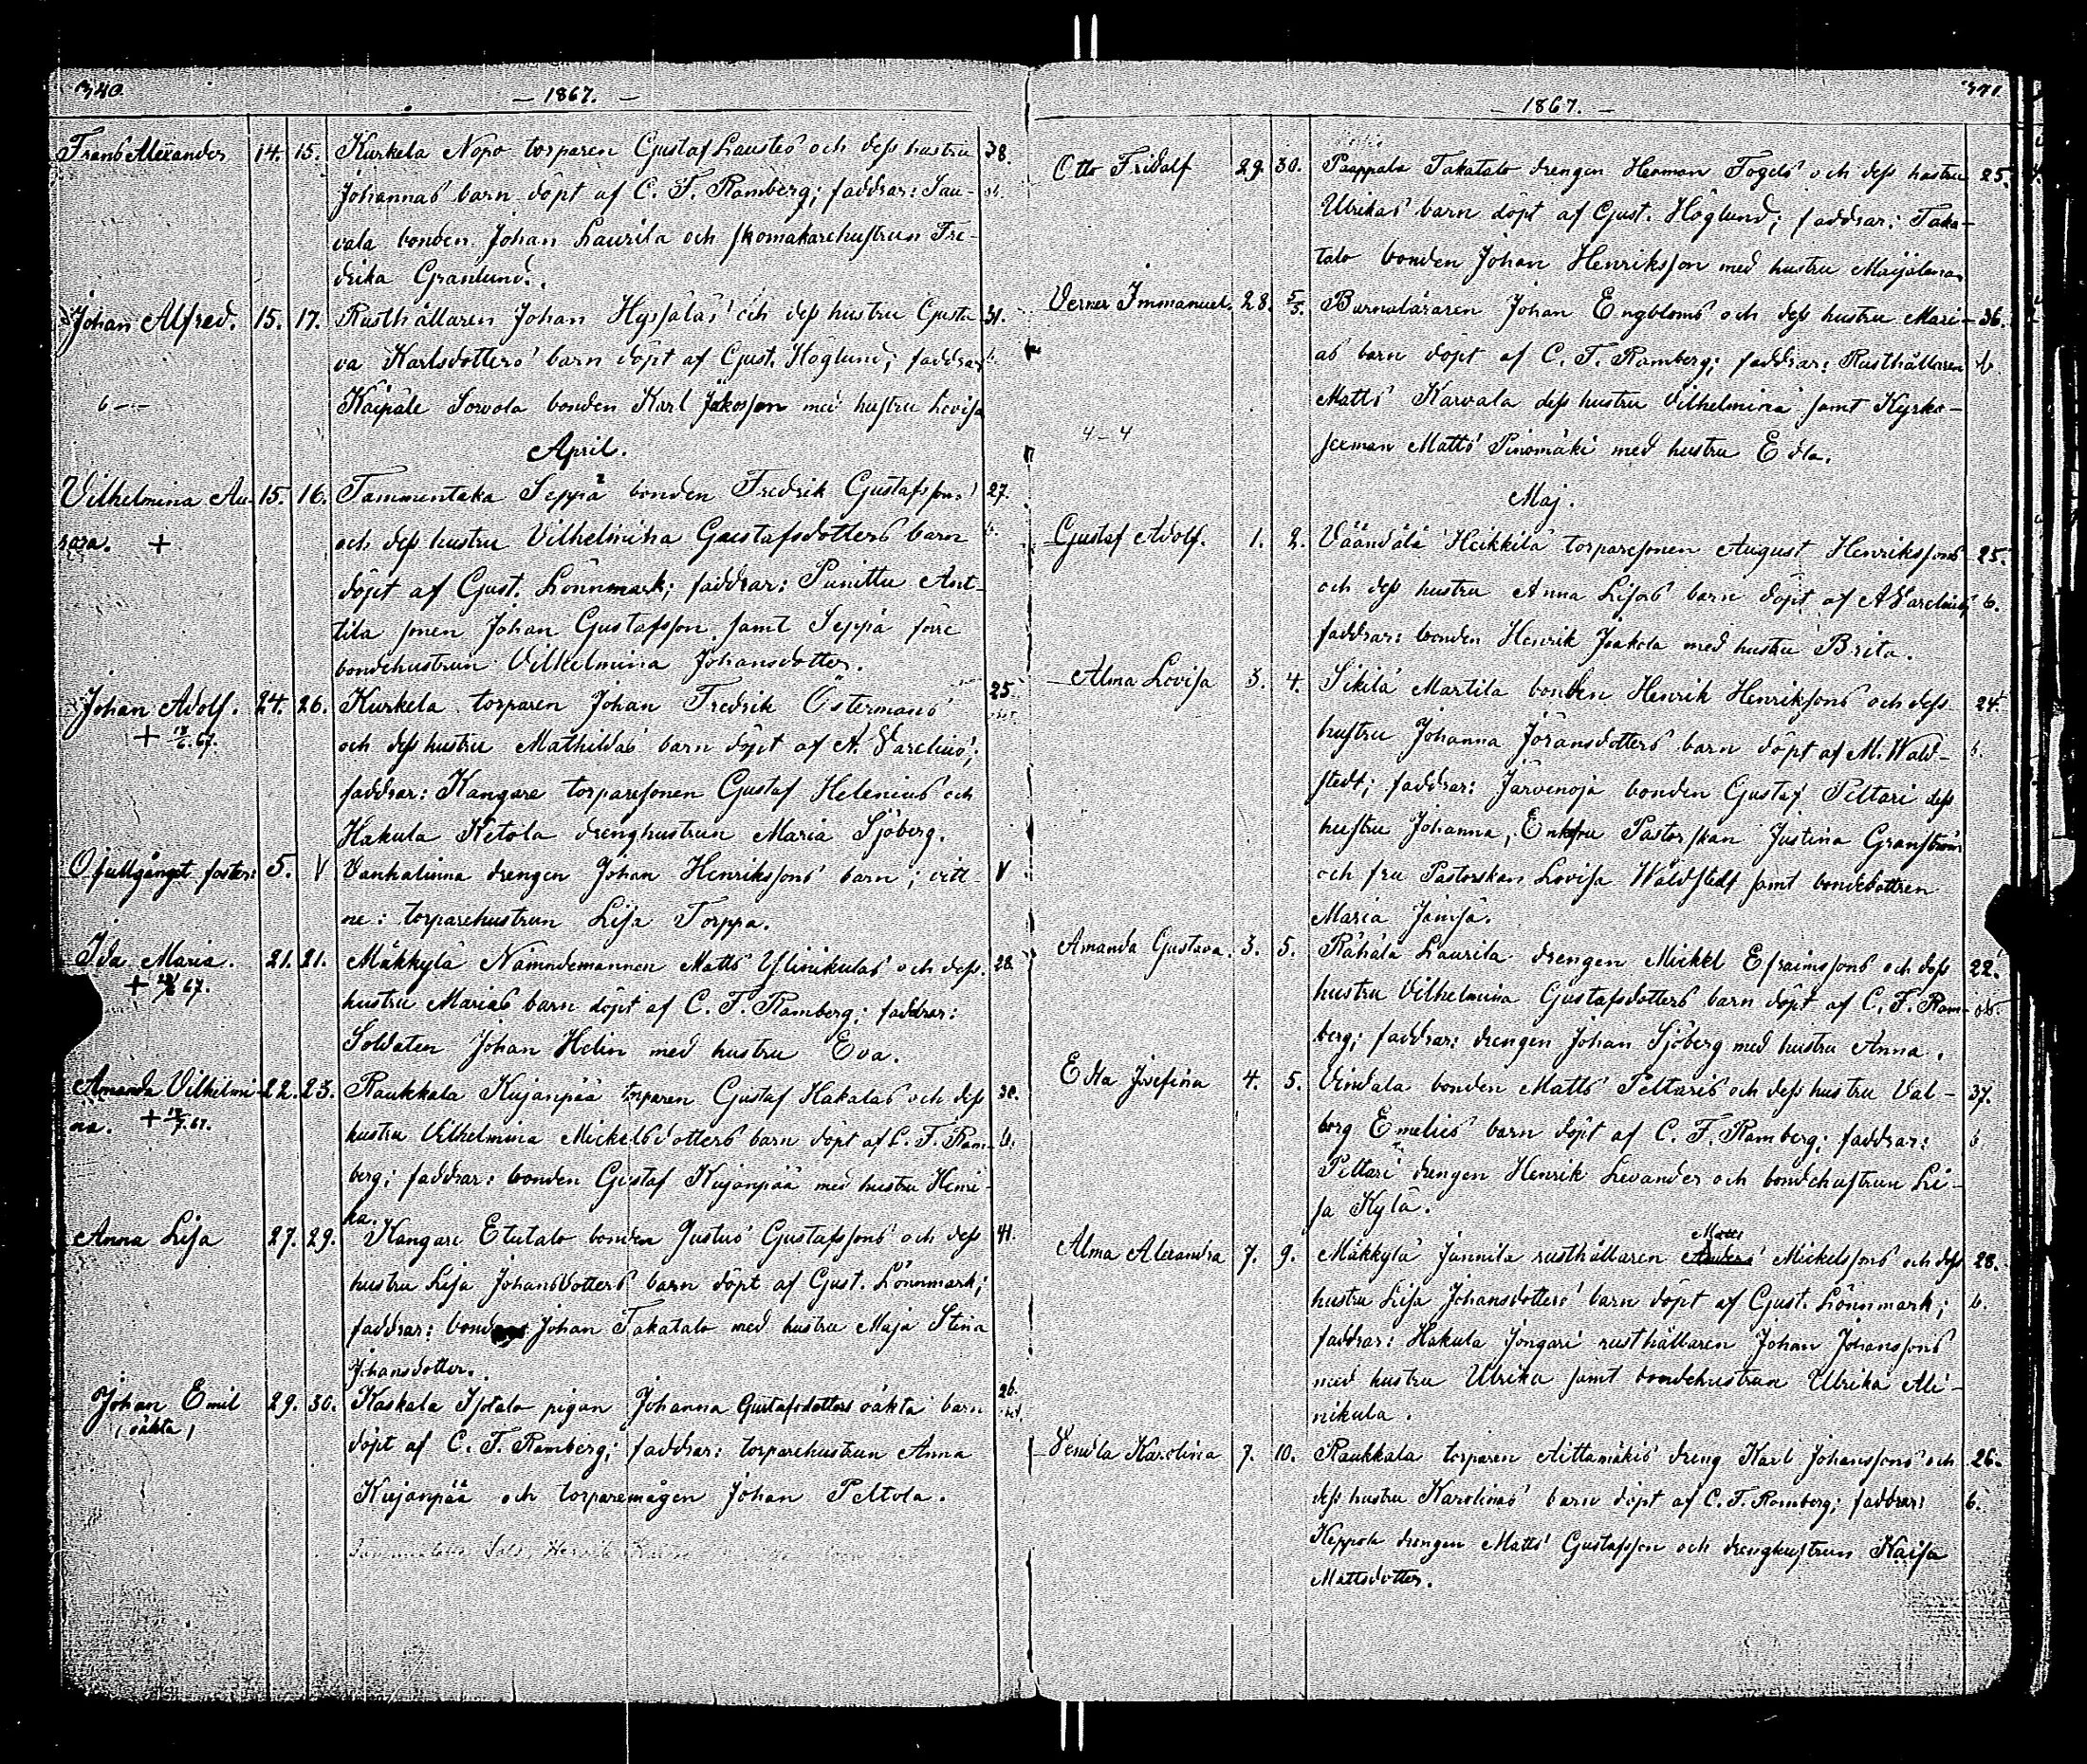 340.
— 1867. —
Frans Alexander 14. 15. Kurkela Nopo torparen Gustaf Laustes och dess hustru 38.
Johannas barn döpt af C. F. Ramberg; faddrar: Sau-
vala bonden Johan Laurila och skomakarehustrun Fre-
drika Granlund.
Johan Alfred. 15. 17. Rusthållaren Johan Hyssäläs och dess hustru Gusta- 31.
va Karlsdotters barn döpt af Gust. Höglund; faddrar
Käipälä Sorvola bonden Karl Jakosson med hustru Lovisa
April.
Vilhelmina Au- 15. 16. Tammentaka Seppä bonden Fredrik Gustafssons 27.
rora. + och dess hustru Vilhelmina Gustafsdotters barn b.
döpt af Gust. Lönnmark; faddrar: Punittu Ant-
tila sonen Johan Gustafsson samt Seppä förre
bondehustrun Vilhelmina Johansdotter.
Johan Adolf. 24. 26. Kurkela torparen Johan Fredrik Östermans 25.
och dess hustru Mathildas barn döpt af A. Varelius;
faddrar: Kangare torparesonen Gustaf Helenius och
Hakula Ketola drenghustrun Maria Sjöberg.
Ofullgånget foster: 5. V Vanhalinna drengen Johan Henrikssons barn; vitt- V
ne: torparehustrun Lisa Torppa.
Ida Maria. 21. 21. Mäkkylä Nämndemannen Matts Ylinikulas och dess 28
hustru Marias barn döpt af C. F. Ramberg; faddrar:
Soldaten Johan Helin med hustru Eva.
Amanda Vilhelmi- 22. 23. Raukkala Kujanpää torparen Gustaf Hakalas och dess 30.
na. hustru Vilhelmina Mickelsdotters barn döpt af C. F. Ram- b.
berg; faddrar: bonden Gustaf Kujanpää med hustru Henri-
ka.
Anna Lisa 27. 29. Kangare Etutalo bonden Justus Gustafssons och dess 41.
hustru Lisa Johansdotters barn döpt af Gust. Lönnmark;
faddrar: bonden Johan Takatalo med hustru Maja Stina
Johansdotter.
Johan Emil 29. 30. Kaskala Isotalo pigan Johanna Gustafsdotters oäkta barn 26.
(oäkta) döpt af C. F. Ramberg; faddrar: torparehustrun Anna
Kujanpää och torparemågen Johan Peltola.
— 1867. —
Otto Fridolf 29. 30. Paappala Takatalo drengen Herman Fogels och dess hustru 25.
Ulrikas barn döpt af Gust. Höglund; faddrar: Taka-
talo bonden Johan Henriksson med hustru Maijalena
Verner Immanuel. 28. 5/5. Barnaläraren Johan Engbloms och dess hustru Mari- 36.
as barn döpt af C. F. Ramberg; faddrar: Rusthållaren b.
4-4 Matts Karvala dess hustru Vilhelmina samt Kyrko-
sexman Matts Pinomäki med hustru Edla.
Maj.
Gustaf Adolf. 1. 2. Väändälä Heikkilä torparesonen August Henrikssons 25.
och dess hustru Anna Lisas barn döpt af A Varelius; b.
faddrar: bonden Henrik Jaakola med hustru Brita.
Alma Lovisa 3. 4. Sikilä Martila bonden Henrik Henrikssons och dess 24.
hustru Johanna Jöransdotters barn döpt af M. Wald- b.
stedt; faddrar: Järvenoja bonden Gustaf Peltari dess
hustru Johanna, Enkfru Pastorskan Justina Granström
och fru Pastorskan Lovisa Waldstedt samt bondedottren
Maria Jämsä.
Amanda Gustava. 3. 5. Rähälä Laurila drengen Mickel Efraimssons och dess 22.
hustru Vilhelmina Gustafsdotters barn döpt af C. F. Ram-
berg; faddrar: drengen Johan Sjöberg med hustru Anna.
Edla Josefina 4. 5. Vindala bonden Matts Peltaris och dess hustru Val- 37.
borg Emelies barn döpt af C. F. Ramberg; faddrar: b
Peltari drengen Henrik Levander och bondehustrun Li-
sa Kylä.
Alma Alexandra 7. 9. Mäkkylä Jannila rusthållaren Anders Matts Mickelssons och dess 28.
hustru Lisa Johansdotters barn döpt af Gust. Lönnmark; b.
faddrar: Hakula Jongari rusthållaren Johan Johanssons
med hustru Ulrika samt bondehustrun Ulrika Ali-
nikula.
Vendla Karolina 7. 10. Raukkala torparen Aittamäkis dreng Karl Johanssons och 26.
dess hustru Karolinas barn döpt af C. F. Ramberg; faddrar: b.
Keppola drengen Matts Gustafsson och drenghustrun Kaisa
Mattsdotter.